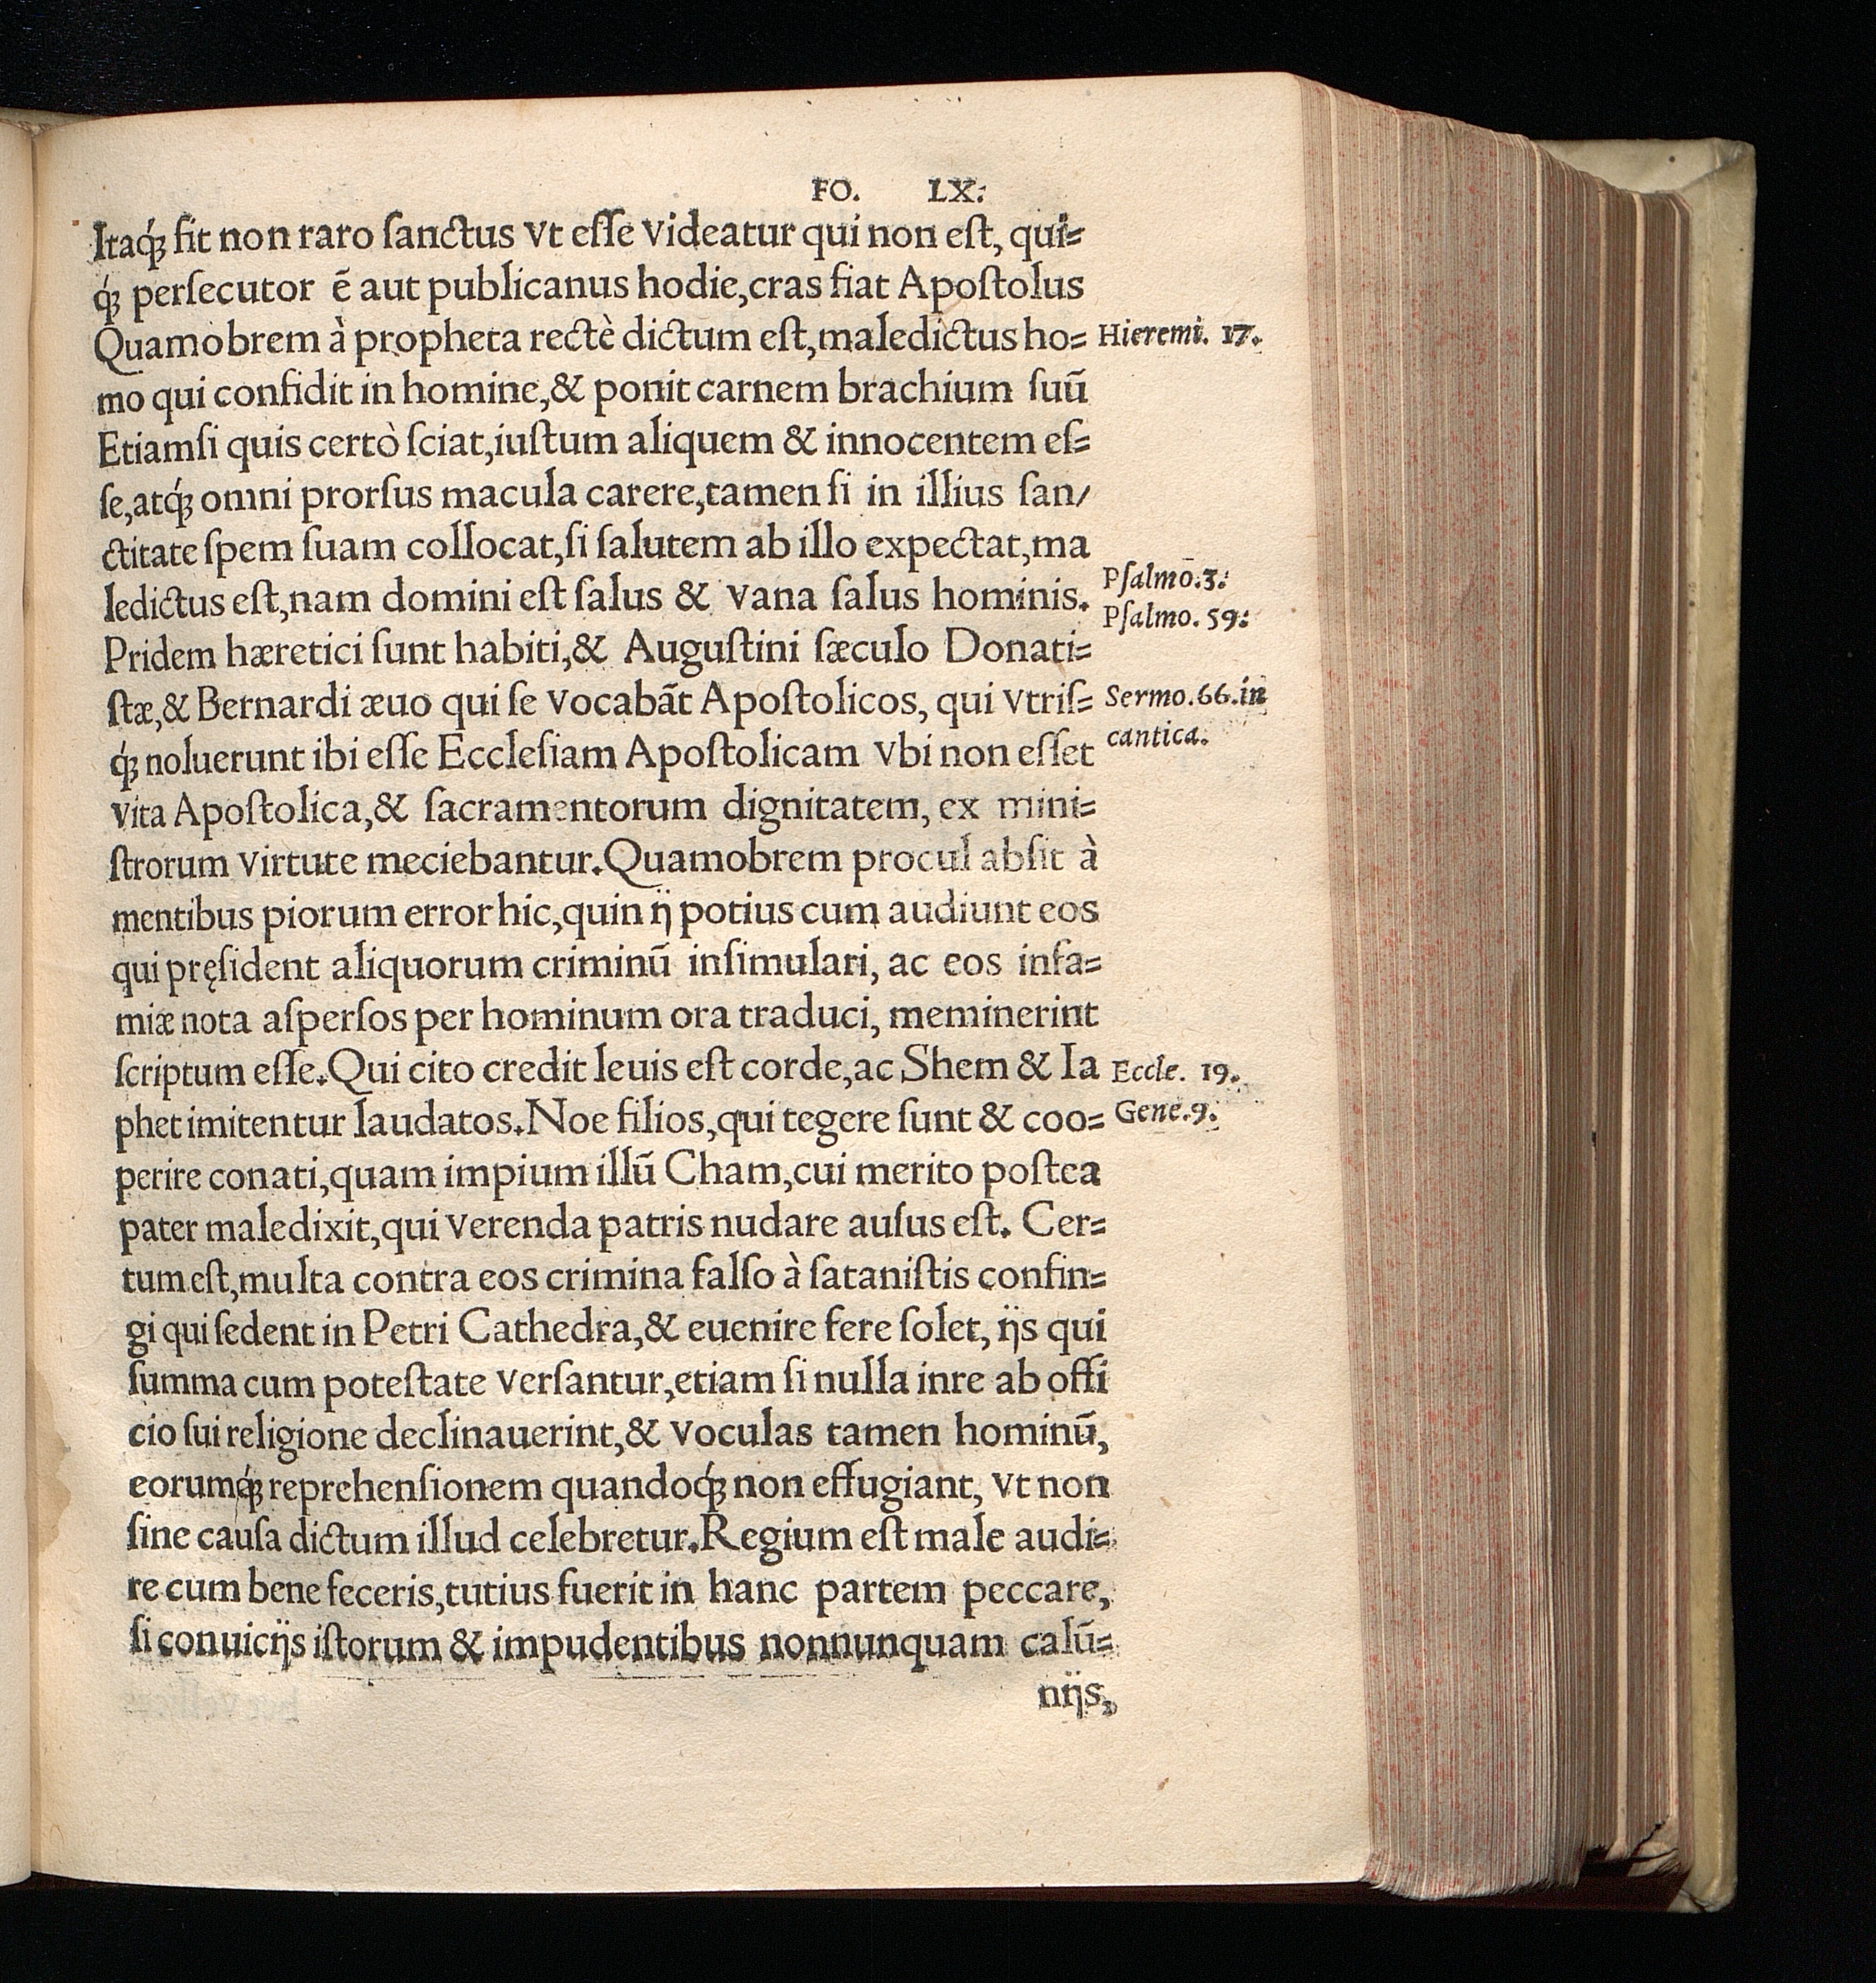 FO. LX:
Itaq́ꝫ fit non raro ſanctus vt eſſe videatur qui non eſt, qui⸗
q́ꝫ perſecutor ē aut publicanus hodie, cras fiat Apoſtolus
Quamobrem à propheta rectè dictum eſt, maledictus ho⸗
Hieremi. 17.
mo qui confidit in homine, & ponit carnem brachium ſuū
Etiamſi quis certò ſciat, iuſtum aliquem & innocentem eſ⸗
ſe, atq́ꝫ omni prorſus macula carere, tamen ſi in illius ſan/
ctitate ſpem ſuam collocat, ſi ſalutem ab illo expectat, ma
ledictus eſt, nam domini eſt ſalus & vana ſalus hominis.
Pſalmō.3:
Pſalmo. 59:
Pridem hæretici ſunt habiti, & Auguſtini ſæculo Donati⸗
ſtæ, & Bernardi æuo qui ſe vocabāt Apoſtolicos, qui vtriſ⸗
Sermo.66.in
cantica.
q́ꝫ noluerunt ibi eſſe Eccleſiam Apoſtolicam vbi non eſſet
vita Apoſtolica, & ſacramentorum dignitatem, ex mini⸗
ſtrorum virtute meciebantur. Quamobrem procul abſit à
mentibus piorum error hic, quin ij potius cum audiunt eos
qui pręſident aliquorum criminū inſimulari, ac eos infa⸗
miæ nota aſperſos per hominum ora traduci, meminerint
ſcriptum eſſe. Qui cito credit leuis eſt corde, ac Shem & Ia
Eccle. 19.
phet imitentur laudatos. Noe filios, qui tegere ſunt & coo⸗
Gene.9.
perire conati, quam impium illū Cham, cui merito poſtea
pater maledixit, qui verenda patris nudare auſus eſt. Cer⸗
tum eſt, multa contra eos crimina falſo à ſataniſtis confin⸗
gi qui ſedent in Petri Cathedra, & euenire fere ſolet, ijs qui
ſumma cum poteſtate verſantur, etiam ſi nulla inre ab offi
cio ſui religione declinauerint, & voculas tamen hominū,
eorumq́ꝫ reprehenſionem quandoq́ꝫ non effugiant, vt non
ſine cauſa dictum illud celebretur. Regium eſt male audi⸗
re cum bene feceris, tutius fuerit in hanc partem peccare,
ſi conuicijs iſtorum & impudentibus nonnunquam calū⸗
nijs,